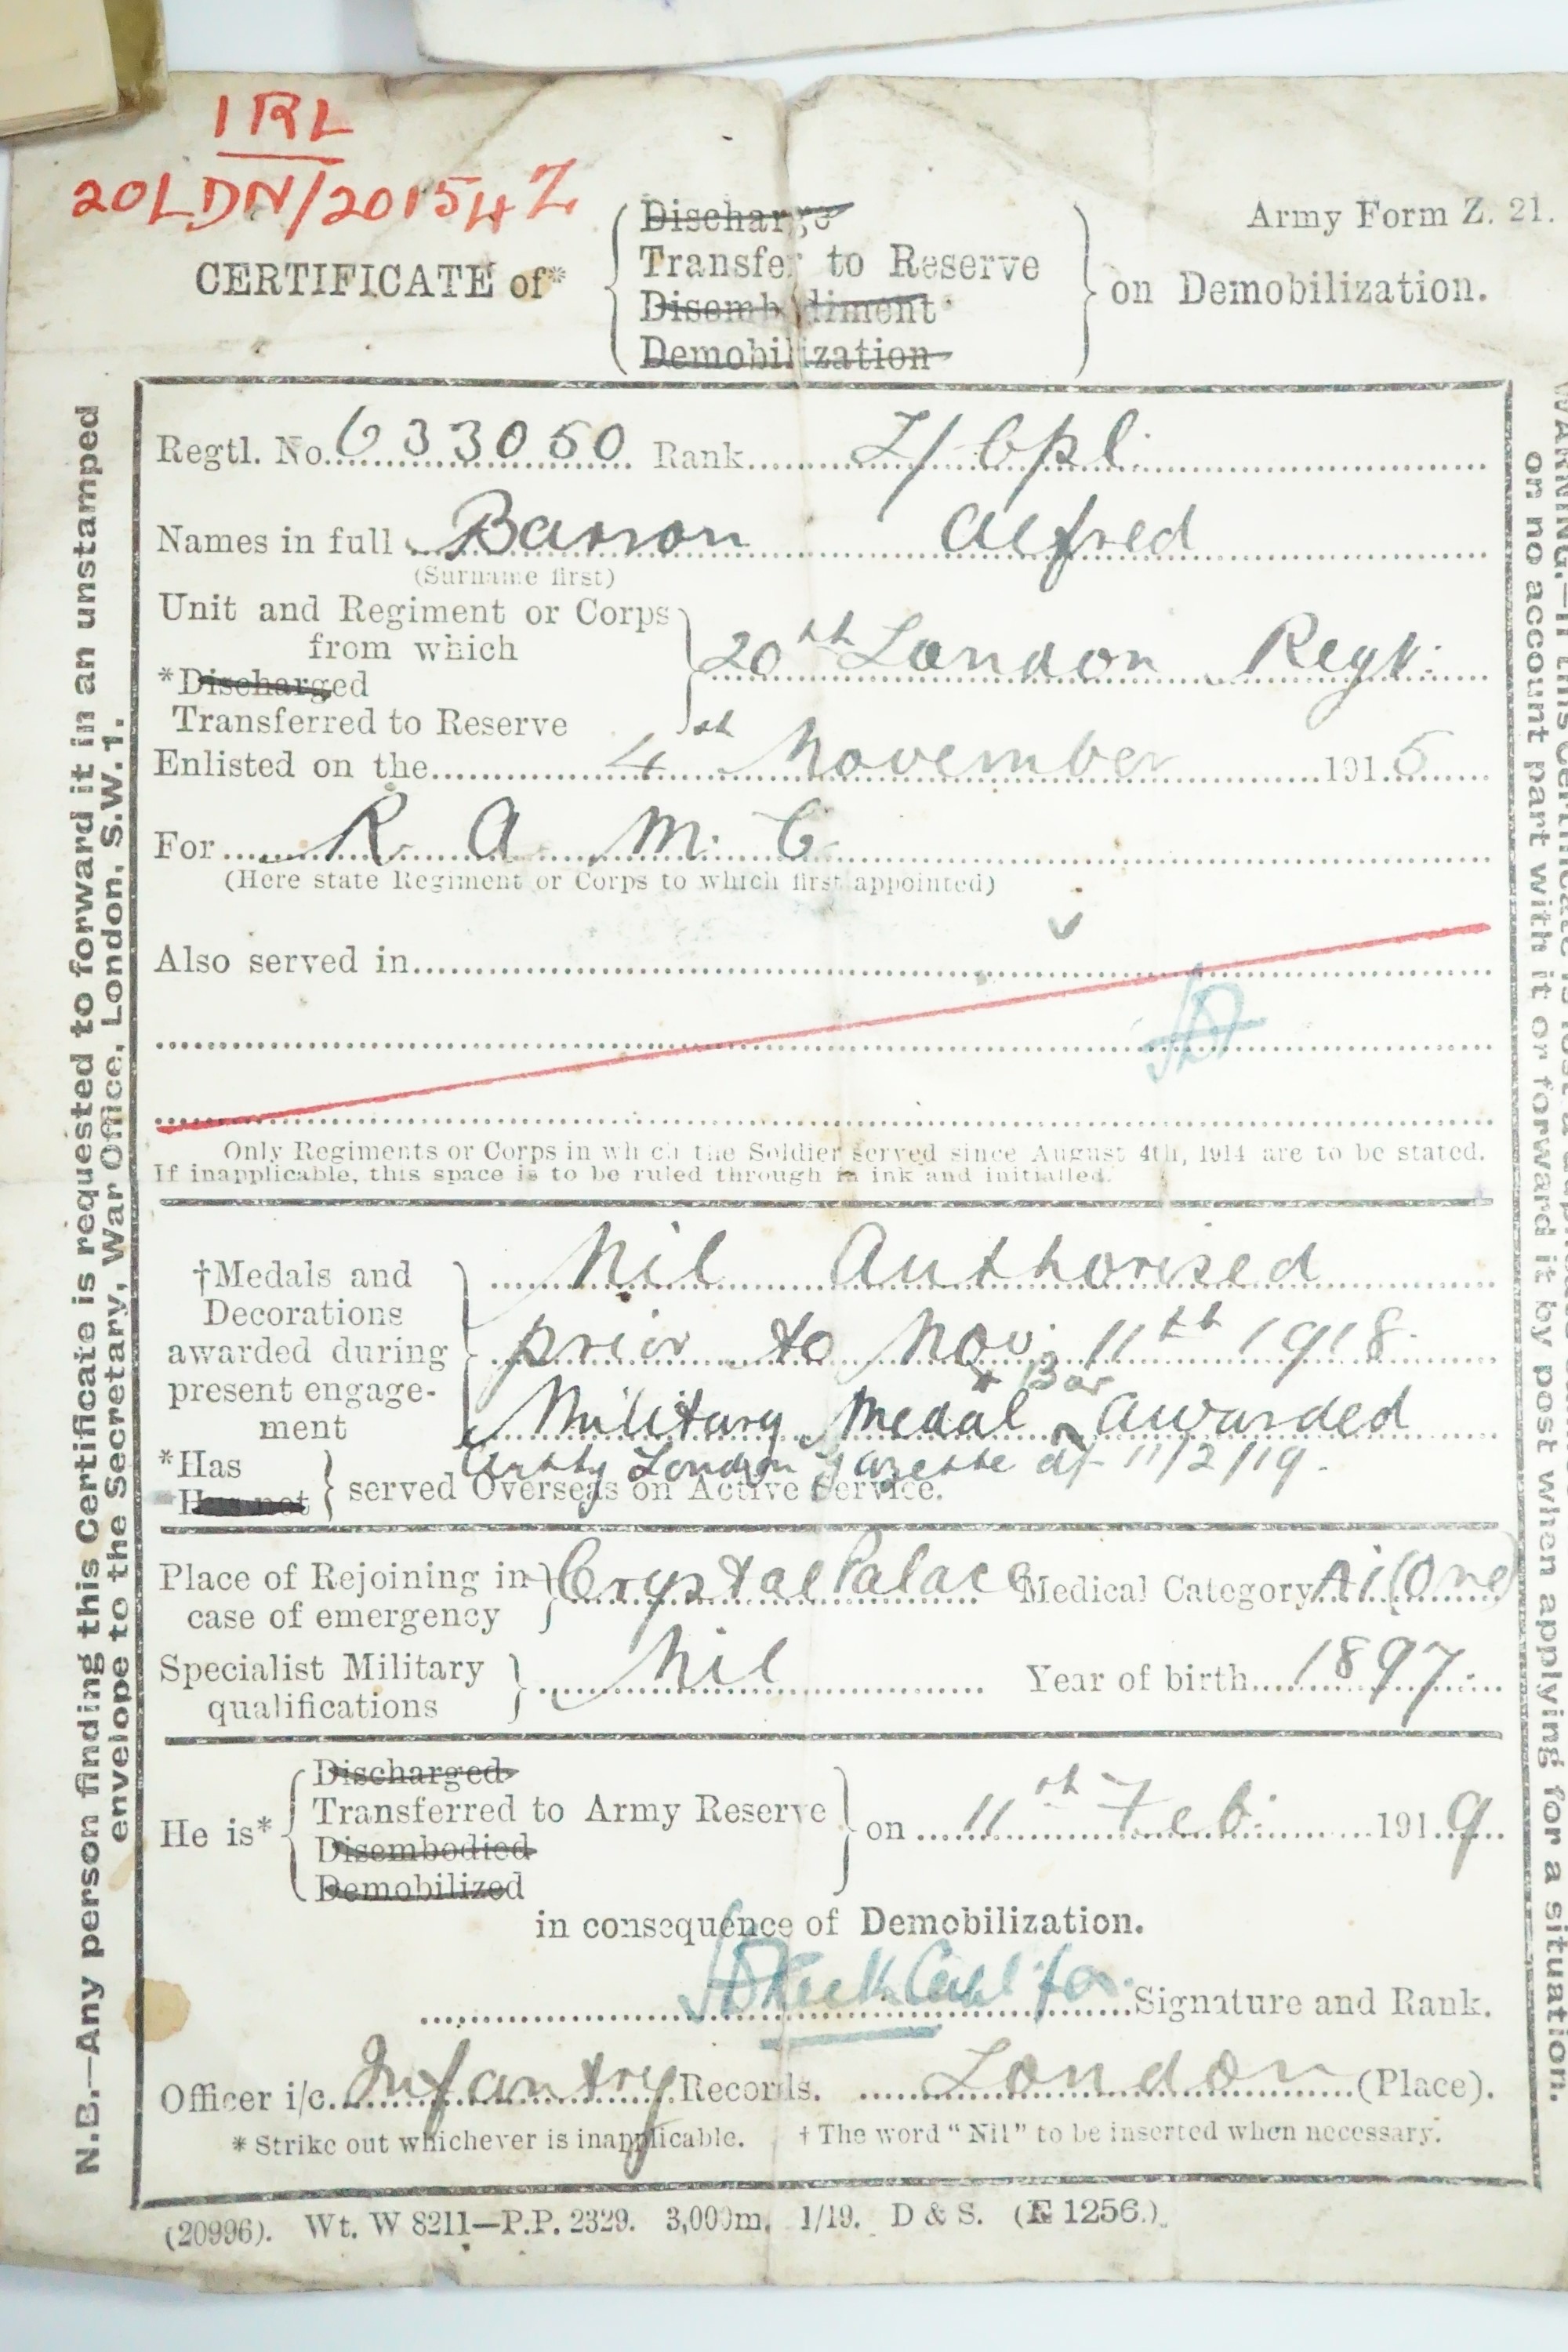 1 RL
20LDN/201542
Army Form Z. 21.
CERTIFICATE of* { Discharge
Transfer to Reserve
Disembodiment
Demobilization } on Demobilization.
Regtl. No. 633050 Rank L/Cpl.
Names in full Barron Alfred
(Surname first)
Unit and Regiment or Corps
from which
*Discharged
Transferred to Reserve } 20th London Regt.
Enlisted on the 4th November 1915
For R. A. M. C.
(Here state Regiment or Corps to which first appointed)
Also served in
Only Regiments or Corps in which the Soldier served since August 4th, 1914 are to be stated.
If inapplicable, this space is to be ruled through in ink and initialled.
†Medals and
Decorations
awarded during
present engage-
ment
Nil Authorised
prior to Nov. 11th 1918.
* Bar
Military Medal Awarded
London Gazette d/- 11/2/19.
*Has
*Has not } served Overseas on Active Service.
Place of Rejoining in
case of emergency } Crystal Palace Medical Category A1 (One)
Specialist Military
qualifications } Nil Year of birth 1897.
He is* { Discharged
Transferred to Army Reserve
Disembodied
Demobilized } on 11th Feb. 1919
in consequence of Demobilization.
for Signature and Rank.
Officer i/c. Infantry Records. London (Place).
* Strike out whichever is inapplicable. † The word "Nil" to be inserted when necessary.
(20996). Wt. W 8211—P.P. 2329. 3,000m. 1/19. D & S. (E 1256.)
N.B.—Any person finding this Certificate is requested to forward it in an unstamped
envelope to the Secretary, War Office, London, S.W. 1.
WARNING.—If this Certificate is lost a
on no account part with it or forward it by post when applying for a situation.